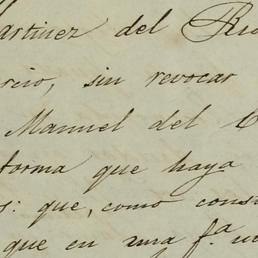 Martinez del Rio
rcio, sin revocar
Manuel del C
forma que haya
s: que, como cons
que en una f.ª u